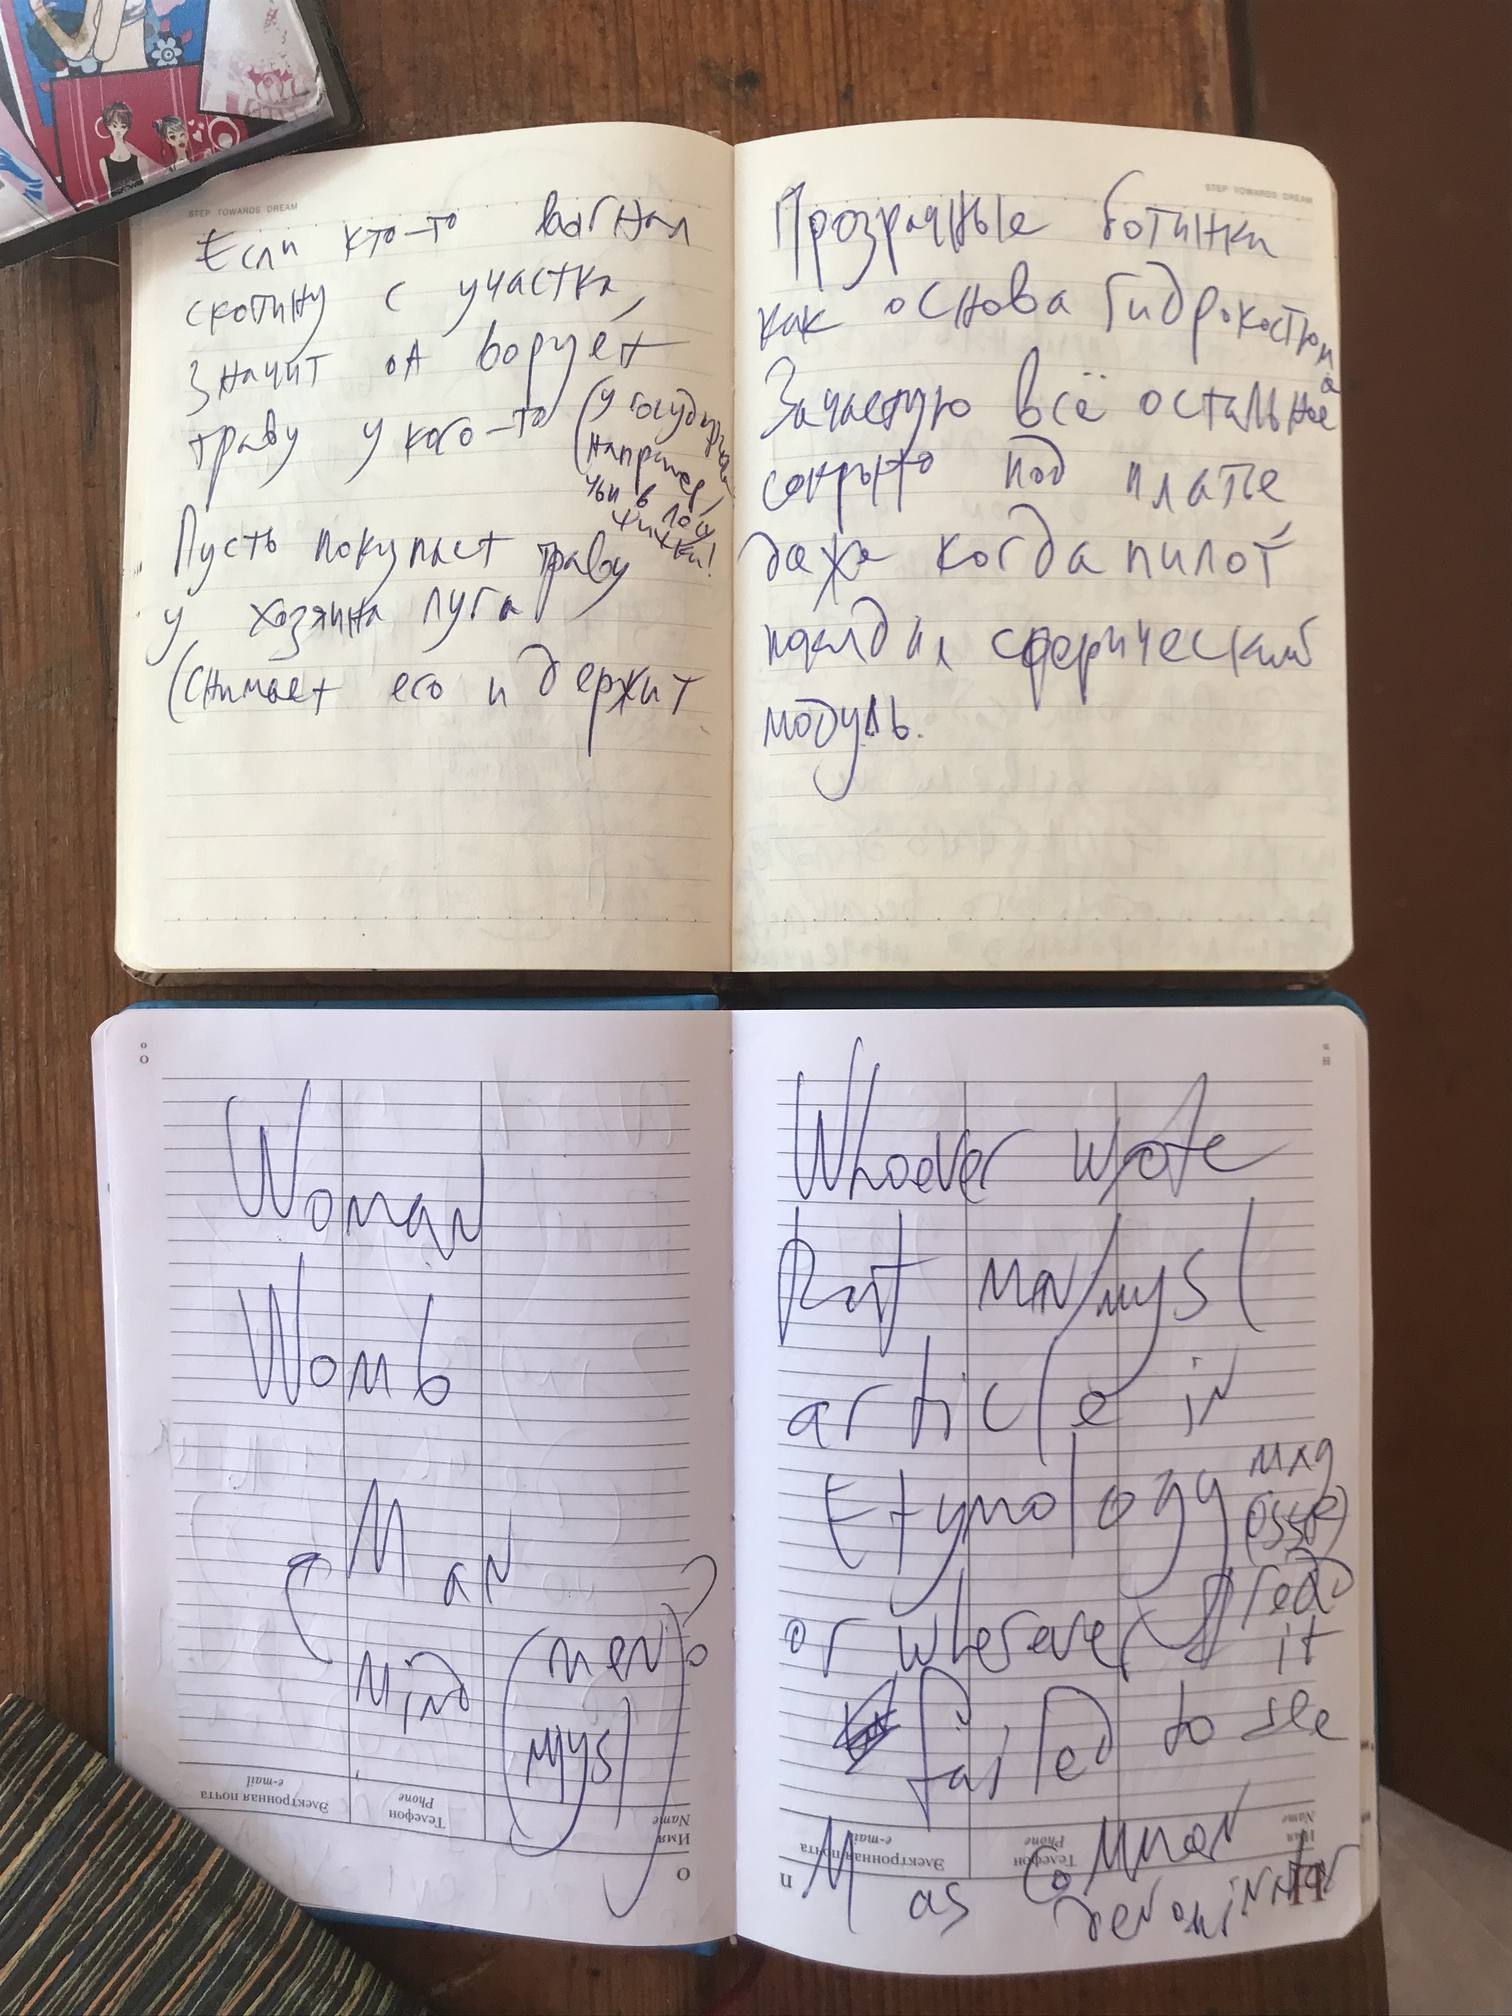 STEP TOWARDS DREAM
Если кто-то выгнал
скотину с участка,
значит он ворует
траву у кого-то
(у государства
например,
чьи в лоу
жижки!
Пусть покупает траву
у хозяина луга
(снимает его и держит
STEP TOWARDS DREAM
Прозрачные ботинки
как основа гидрокостюма
Зачастую всё остальное
сокрыто под платье
даже когда пилот
надел сферический
модуль.
о
О
Woman
Womb
Man
Mind (men
mysl)?
Электронная почта
e-mail
Телефон
Phone
Имя
Name
О
Н
Whoever wrote
that man/mysl
article in
Etymology
or wherever I read
it
failed to see
M as common
denominator
Электронная почта
e-mail
Телефон
Phone
Имя
Name
П